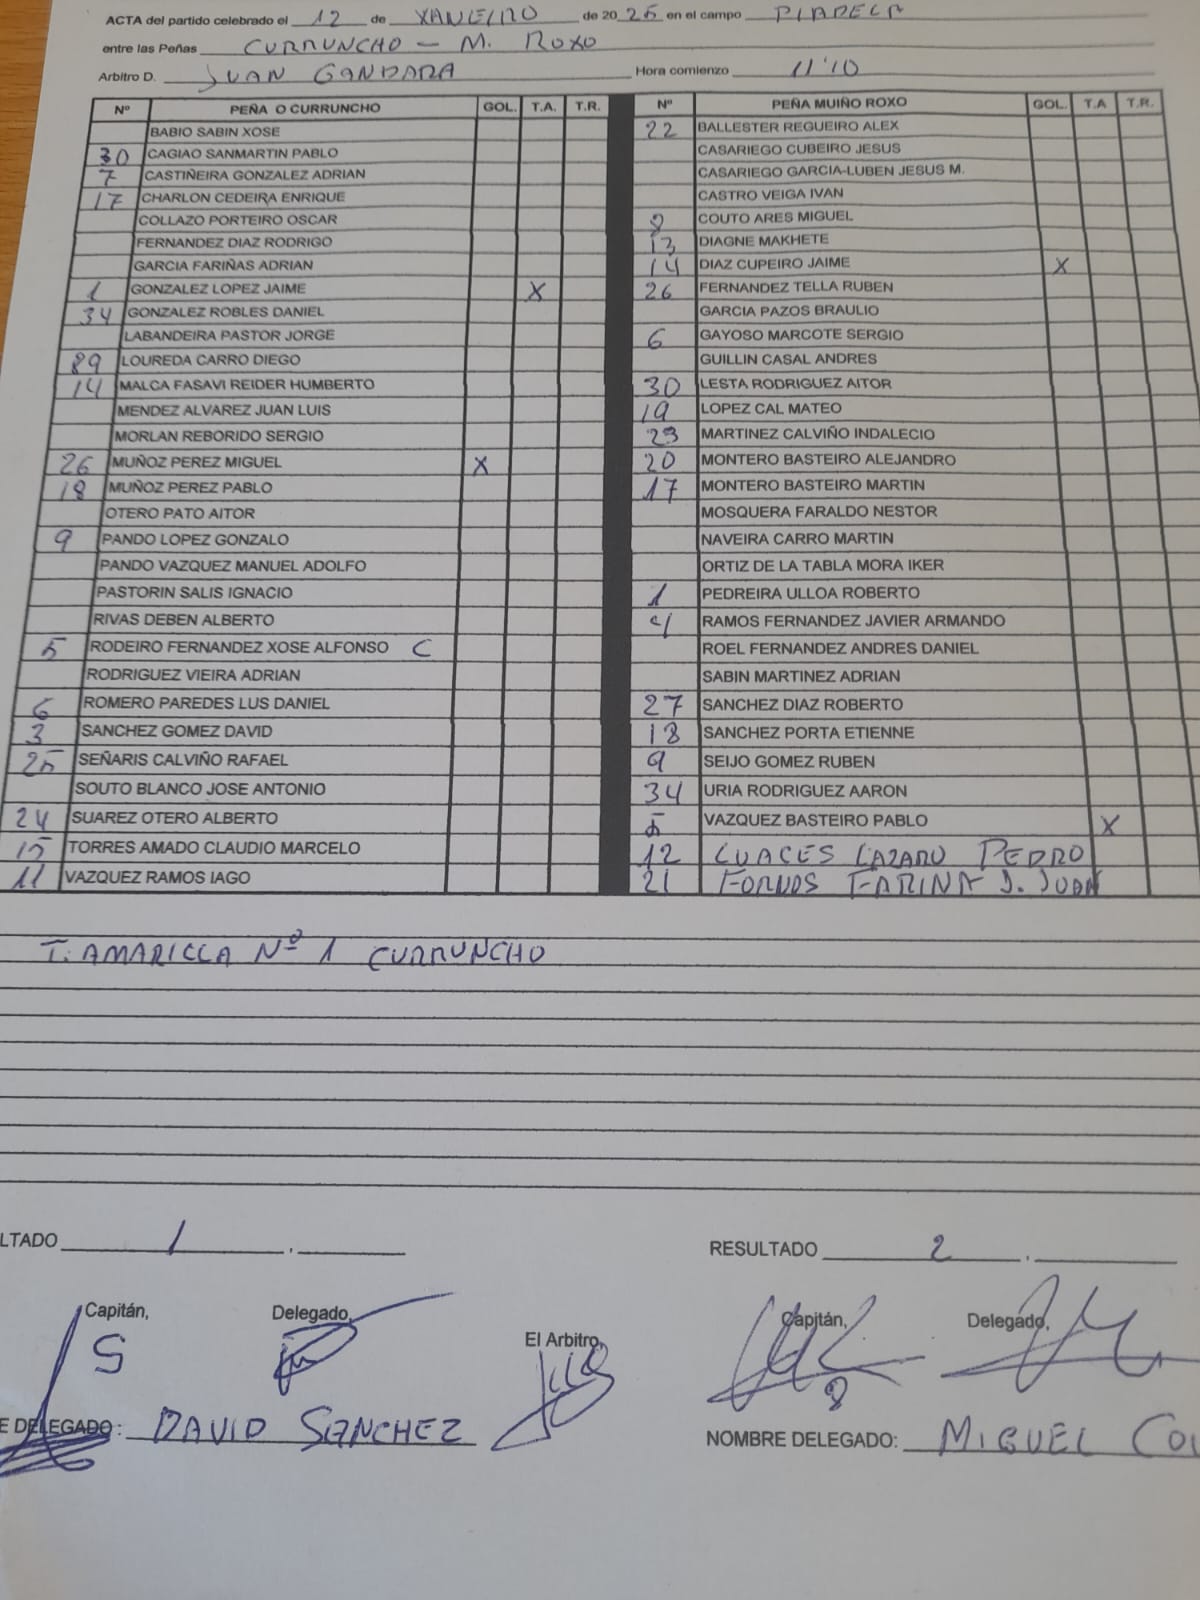 ACTA del partido celebrado el 12 de XANEIRO de 2025 en el campo PIADELA
entre las Peñas CURRUNCHO - M. ROXO
Arbitro D. JUAN GANDARA Hora comienzo 11'10
Nº PEÑA O CURRUNCHO GOL. T.A. T.R.
BABIO SABIN XOSE
30 CAGIAO SANMARTIN PABLO
7 CASTIÑEIRA GONZALEZ ADRIAN
17 CHARLON CEDEIRA ENRIQUE
COLLAZO PORTEIRO OSCAR
FERNANDEZ DIAZ RODRIGO
GARCIA FARIÑAS ADRIAN
1 GONZALEZ LOPEZ JAIME X
34 GONZALEZ ROBLES DANIEL
LABANDEIRA PASTOR JORGE
89 LOUREDA CARRO DIEGO
14 MALCA FASAVI REIDER HUMBERTO
MENDEZ ALVAREZ JUAN LUIS
MORLAN REBORIDO SERGIO
26 MUÑOZ PEREZ MIGUEL X
18 MUÑOZ PEREZ PABLO
OTERO PATO AITOR
9 PANDO LOPEZ GONZALO
PANDO VAZQUEZ MANUEL ADOLFO
PASTORIN SALIS IGNACIO
RIVAS DEBEN ALBERTO
5 RODEIRO FERNANDEZ XOSE ALFONSO C
RODRIGUEZ VIEIRA ADRIAN
6 ROMERO PAREDES LUS DANIEL
3 SANCHEZ GOMEZ DAVID
25 SEÑARIS CALVIÑO RAFAEL
SOUTO BLANCO JOSE ANTONIO
24 SUAREZ OTERO ALBERTO
15 TORRES AMADO CLAUDIO MARCELO
11 VAZQUEZ RAMOS IAGO
Nº PEÑA MUIÑO ROXO GOL. T.A T.R.
22 BALLESTER REGUEIRO ALEX
CASARIEGO CUBEIRO JESUS
CASARIEGO GARCIA-LUBEN JESUS M.
CASTRO VEIGA IVAN
8 COUTO ARES MIGUEL
13 DIAGNE MAKHETE
14 DIAZ CUPEIRO JAIME X
26 FERNANDEZ TELLA RUBEN
GARCIA PAZOS BRAULIO
6 GAYOSO MARCOTE SERGIO
GUILLIN CASAL ANDRES
30 LESTA RODRIGUEZ AITOR
19 LOPEZ CAL MATEO
23 MARTINEZ CALVIÑO INDALECIO
20 MONTERO BASTEIRO ALEJANDRO
17 MONTERO BASTEIRO MARTIN
MOSQUERA FARALDO NESTOR
NAVEIRA CARRO MARTIN
ORTIZ DE LA TABLA MORA IKER
1 PEDREIRA ULLOA ROBERTO
4 RAMOS FERNANDEZ JAVIER ARMANDO
ROEL FERNANDEZ ANDRES DANIEL
SABIN MARTINEZ ADRIAN
27 SANCHEZ DIAZ ROBERTO
18 SANCHEZ PORTA ETIENNE
9 SEIJO GOMEZ RUBEN
34 URIA RODRIGUEZ AARON
5 VAZQUEZ BASTEIRO PABLO X
12 LUACES LAZARO PEDRO
21 FORNOS FARIÑA J. JUAN
T. AMARILLA Nº 1 CURRUNCHO
LTADO 1 .
RESULTADO 2 .
Capitán, Delegado, El Arbitro,
5
Capitán, Delegado,
8
E DELEGADO: DAVID SANCHEZ
NOMBRE DELEGADO: MIGUEL COU